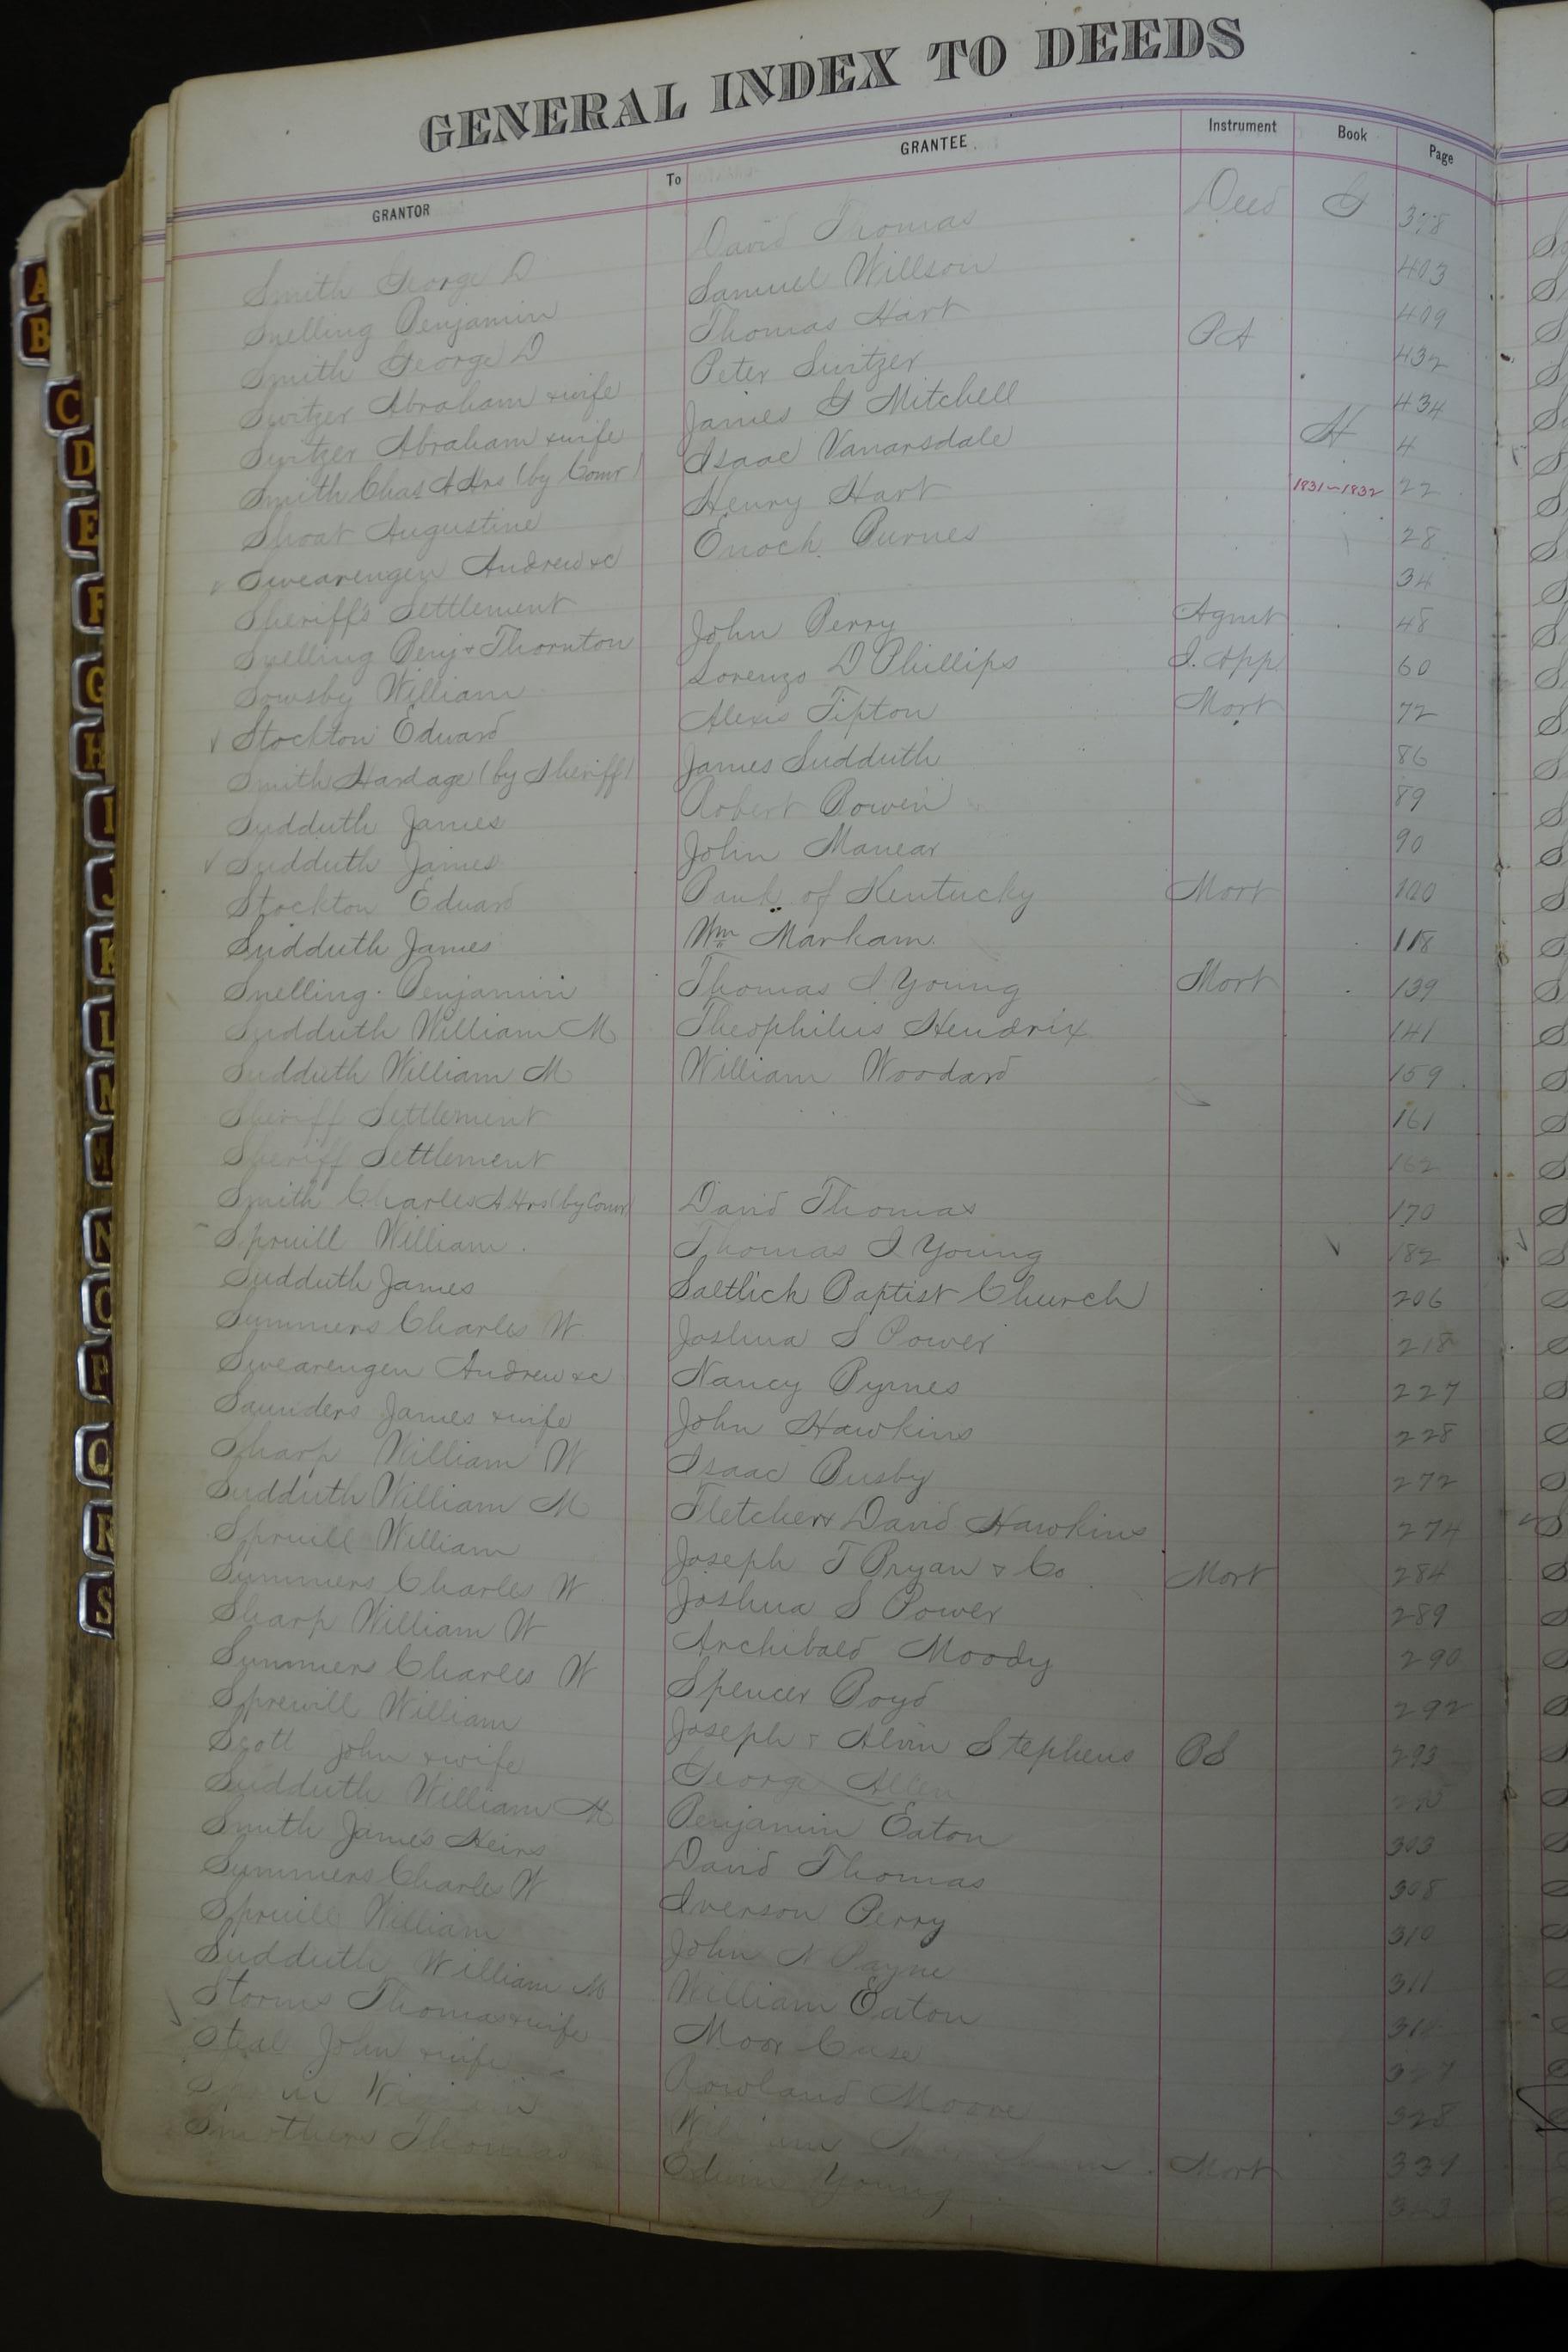 GENERAL INDEX TO DEEDS
GRANTOR To GRANTEE Instrument Book Page
Smith George D David Thomas Deed G 378
Snelling Benjamin Samuel Willson 403
Smith George D Thomas Hart 409
Switzer Abraham & wife Peter Switzer PA 432
Switzer Abraham & wife James G Mitchell 434
Smith Chas A Hrs (by Comr) Isaac Vanarsdale H 4
Shoat Augustine Henry Hart 1831-1832 22
Swearengen Andrew &c Enoch Burnes 28
Sheriffs Settlement 34
Snelling Benj & Thornton John Perry Agmt 48
Sowsby William Lorenzo D Phillips I. App 60
Stockton Edward Alexis Tipton Mort 72
Smith Hardage (by Sheriff) James Sudduth 86
Sudduth James Robert Bowen 89
Sudduth James John Manear 90
Stockton Edward Bank of Kentucky Mort 110
Sudduth James Wm Markam 118
Snelling Benjamin Thomas I Young Mort 139
Sudduth William M Theophilus Hendrix 141
Sudduth William M William Woodard 159
Sheriff Settlement 161
Sheriff Settlement 162
Smith Charles A Hrs (by Comr) David Thomas 170
Spruill William Thomas I Young 182
Sudduth James Saltlick Baptist Church 206
Summers Charles W Joshua S Power 218
Swearengen Andrew &c Nancy Byrnes 227
Saunders James & wife John Hawkins 228
Sharp William W Isaac Busby 272
Sudduth William M Fletcher & David Hawkins 274
Spruill William Joseph T Bryan & Co Mort 284
Summers Charles W Joshua S Power 289
Sharp William W Archibald Moody 290
Summers Charles W Spencer Boyd 292
Sprewill William Joseph & Alvin Stephens BS 293
Scott John & wife George Allen
Sudduth William M Benjamin Eaton 303
Smith James Heirs David Thomas 308
Summers Charles W Iverson Perry 310
Spruill William John N Payne 311
Sudduth William M William Eaton
Storms Thomas & wife Moor Case
Steal John & wife Rowland Moore 328
William Mort
Thomas Edwin Young
A
B
C
D
E
F
G
H
I
J
K
L
M
N
O
P
Q
R
S